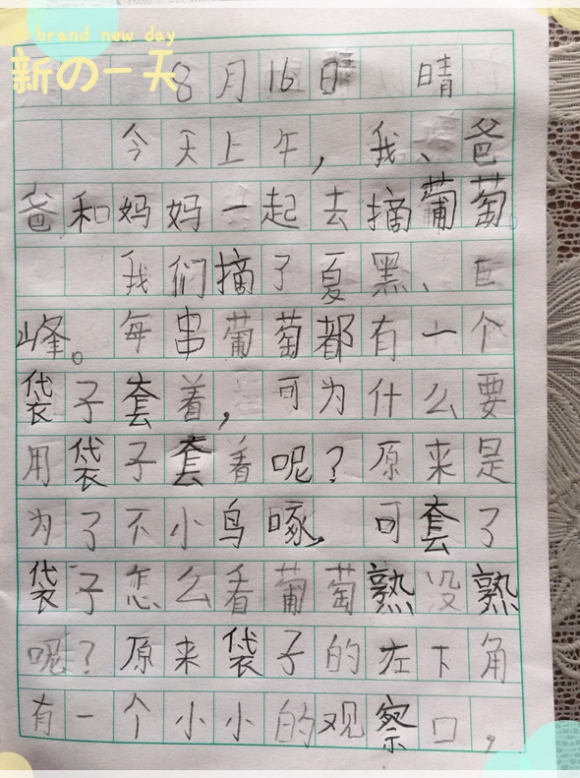 brand new day
新の一天
8月16日 晴
今天上午，我、爸
爸和妈妈一起去摘葡萄。
我们摘了夏黑、巨
峰。每串葡萄都有一个
袋子套着，可为什么要
用袋子套着呢？原来是
为了不小鸟啄，可套了
袋子怎么看葡萄熟没熟
呢？原来袋子的左下角
有一个小小的观察口，